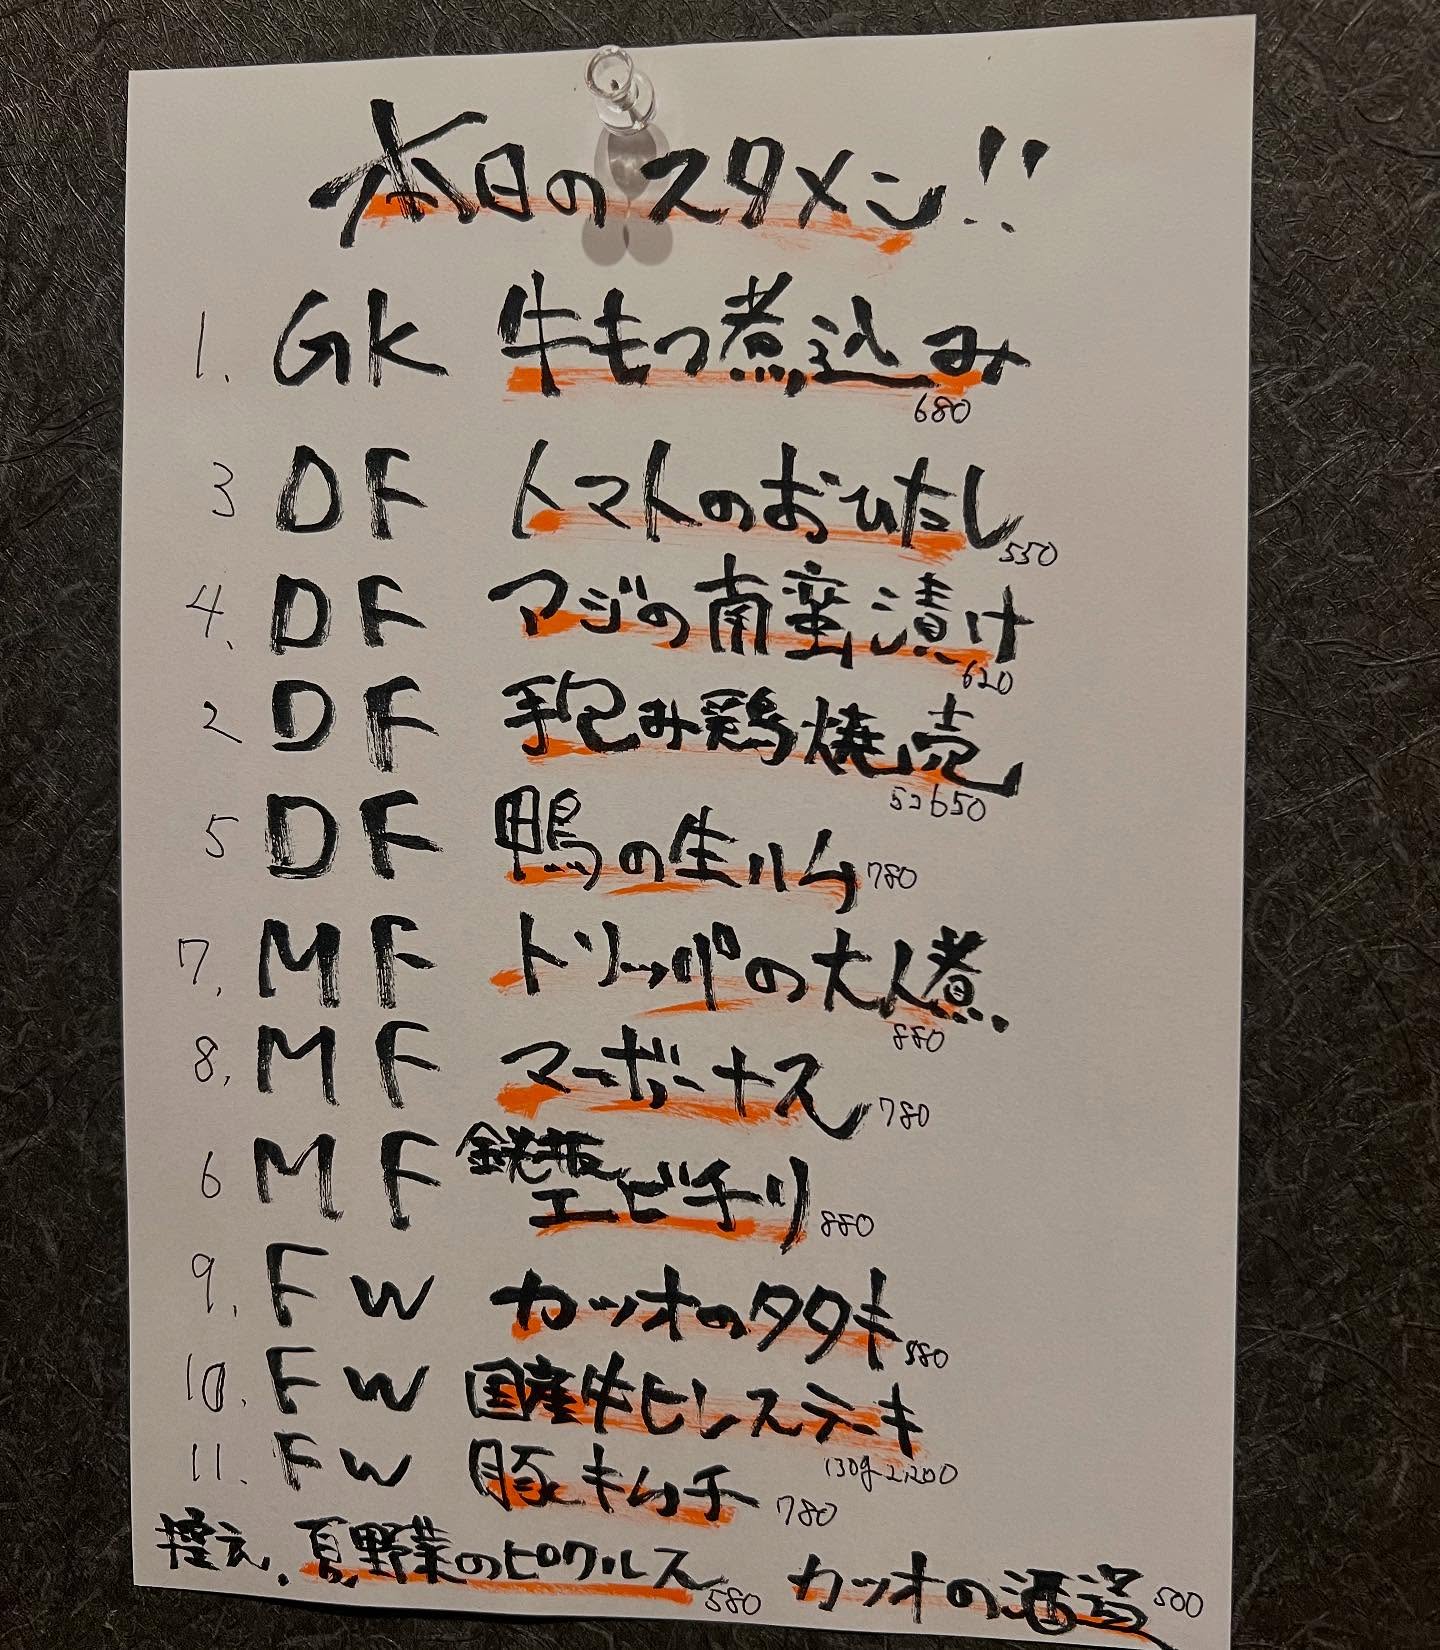 本日のスタメン!!
1. GK 牛もつ煮込み
680
3 DF トマトのおひたし
550
4. DF アジの南蛮漬け
620
2 DF 手包み鶏焼売
5コ650
5 DF 鴨の生ハム 780
7. MF トリッパの大人煮
880
8. MF マーボーナス 780
6 MF 鉄板エビチリ 880
9. FW カツオのタタキ
10. FW 国産牛ヒレステーキ
130g 2,200
11. FW 豚キムチ 780
控え. 夏野菜のピクルス 580 カツオの酒盗 500